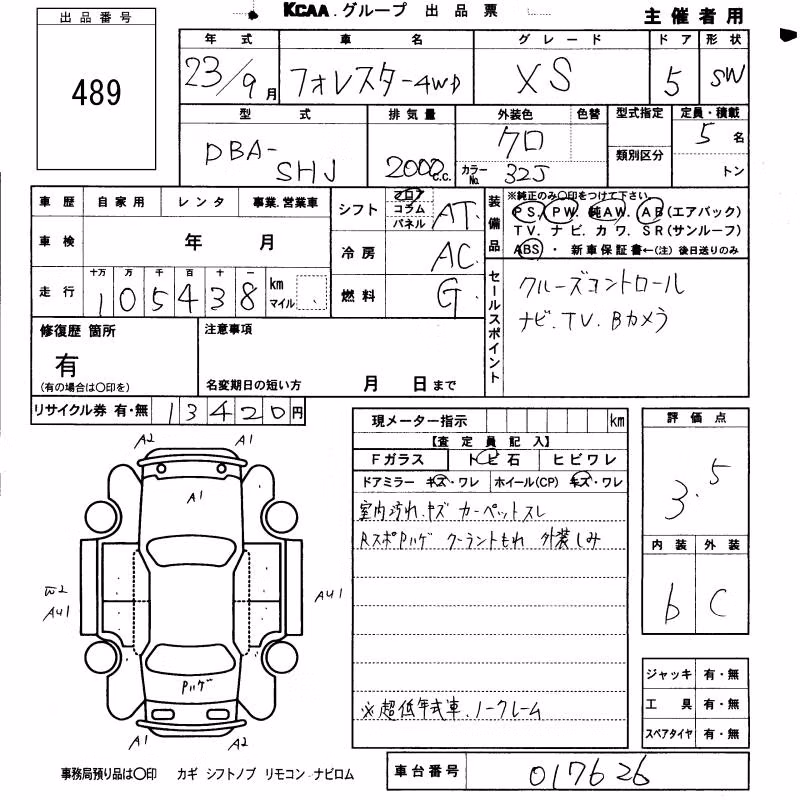 KCAA.グループ 出品票
主催者用
出品番号
489
年式 車名 グレード ドア 形状
23/9月 フォレスター4WD XS 5 SW
型式 排気量 外装色 色替 型式指定 定員・積載
DBA-SHJ 2000c.c. クロ カラーNo. 32J 類別区分 5名 トン
車歴 自家用 レンタ 事業.営業車
車検 年 月
走行 十万 万 千 百 十 一
105438 km マイル
シフト フロア コラム パネル AT
冷房 AC
燃料 G
装備品
※純正のみ〇印をつけて下さい
PS. PW. 純AW. AB(エアバック)
TV. ナビ. カワ. SR(サンルーフ)
ABS・ 新車保証書←(注)後日送りのみ
セールスポイント
クルーズコントロール
ナビ.TV.Bカメラ
修復歴 箇所
有
(有の場合は〇印を)
注意事項
名変期日の短い方 月 日まで
リサイクル券 有・無 13420円
現メーター指示 km
【査定員記入】
Fガラス トビ石 ヒビワレ
ドアミラー キズ・ワレ ホイール(CP) キズ・ワレ
室内汚れ.キズ カーペットスレ
RスポPハゲ クーラントもれ 外装しみ
※超低年式車.ノークレーム
評価点
3.5
内装 外装
b C
ジャッキ 有・無
工具 有・無
スペアタイヤ 有・無
A2 A1
A1
W2
A41 A41
Pハゲ
A1 A2
事務局預り品は〇印 カギ シフトノブ リモコン ナビロム
車台番号 017626